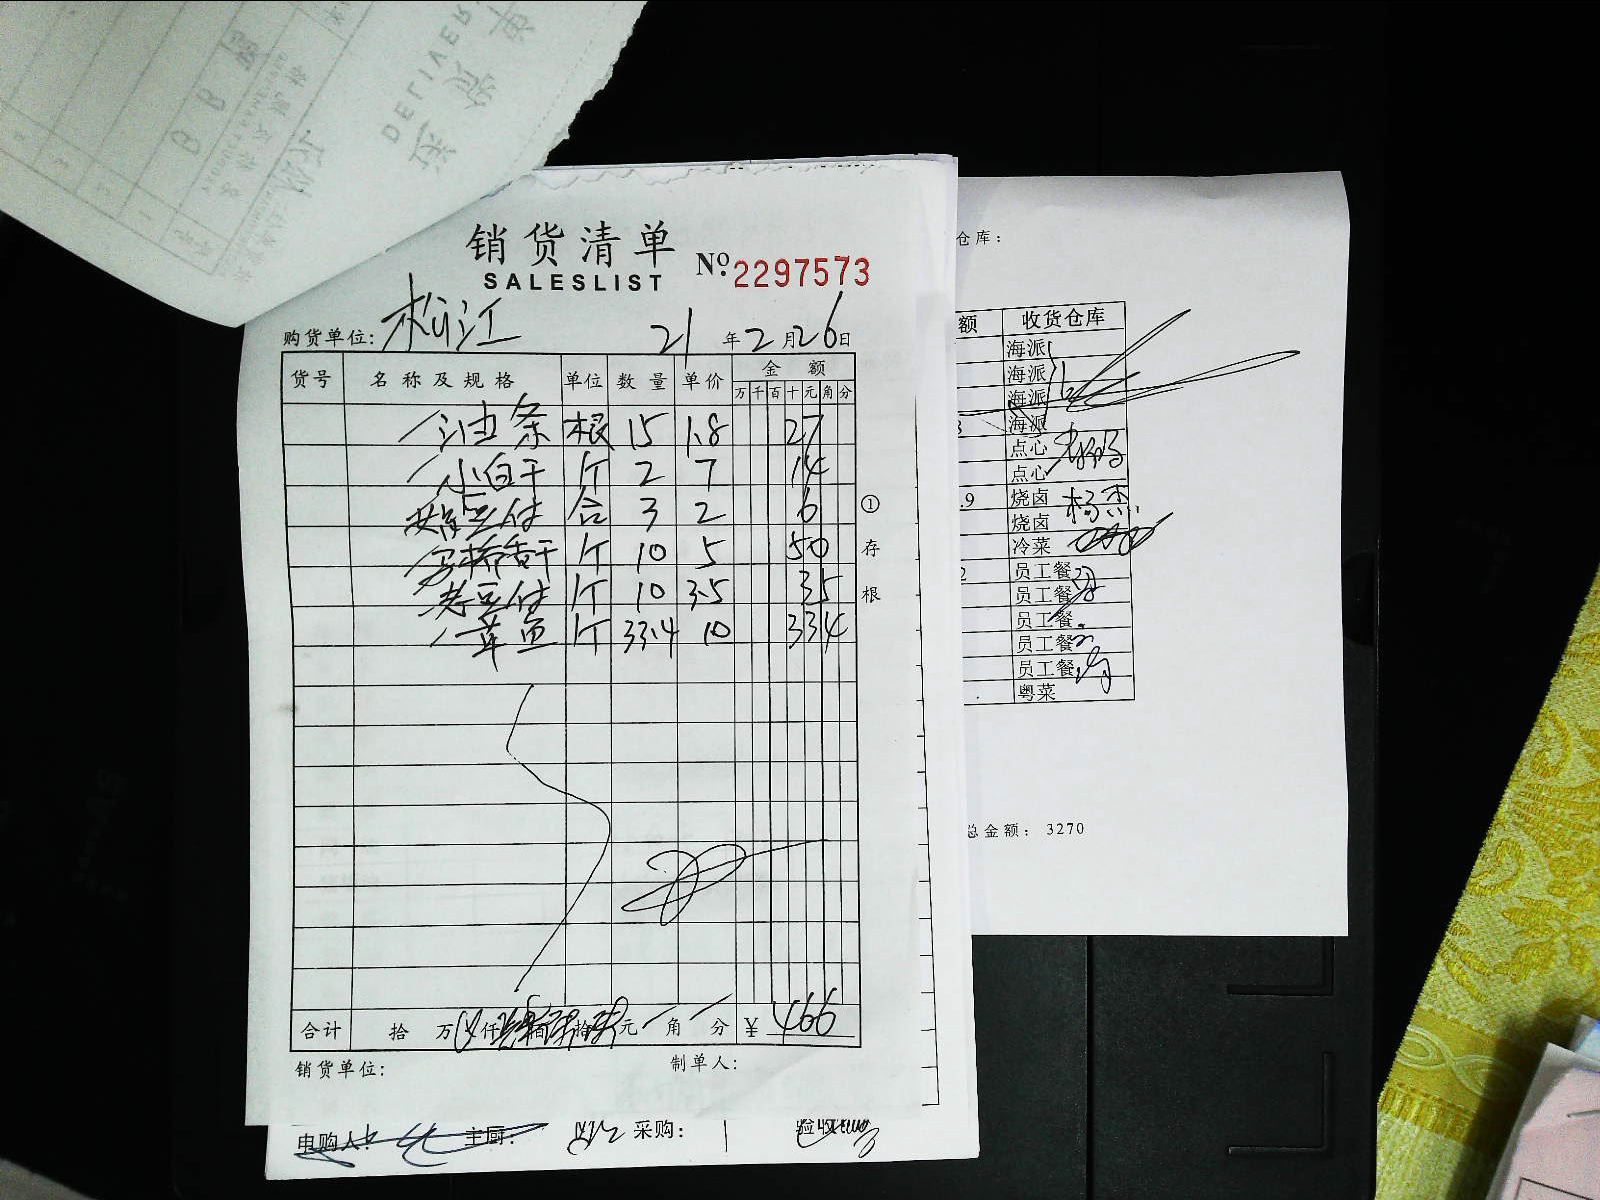 DELIVER
销货清单
SALESLIST
No. 2297573
购货单位: 松江 21年2月26日
货号 名称及规格 单位 数量 单价 金额
万 千 百 十 元 角 分
油条 根 15 1.8 27
小白干 斤 2 7 14
豆付 合 3 2 6
香干 斤 10 5 50
老豆付 斤 10 3.5 35
章鱼 斤 33.4 10 334
① 存根
合计 拾 万 仟 佰 拾 元 角 分 ¥ 466
销货单位: 制单人:
申购人: 主厨: 采购: 验收
仓库:
额 收货仓库
海派
海派
海派
海派
点心
点心
.9 烧卤 杨杰
烧卤
冷菜
2 员工餐
员工餐
员工餐
员工餐
员工餐
粤菜
总金额: 3270